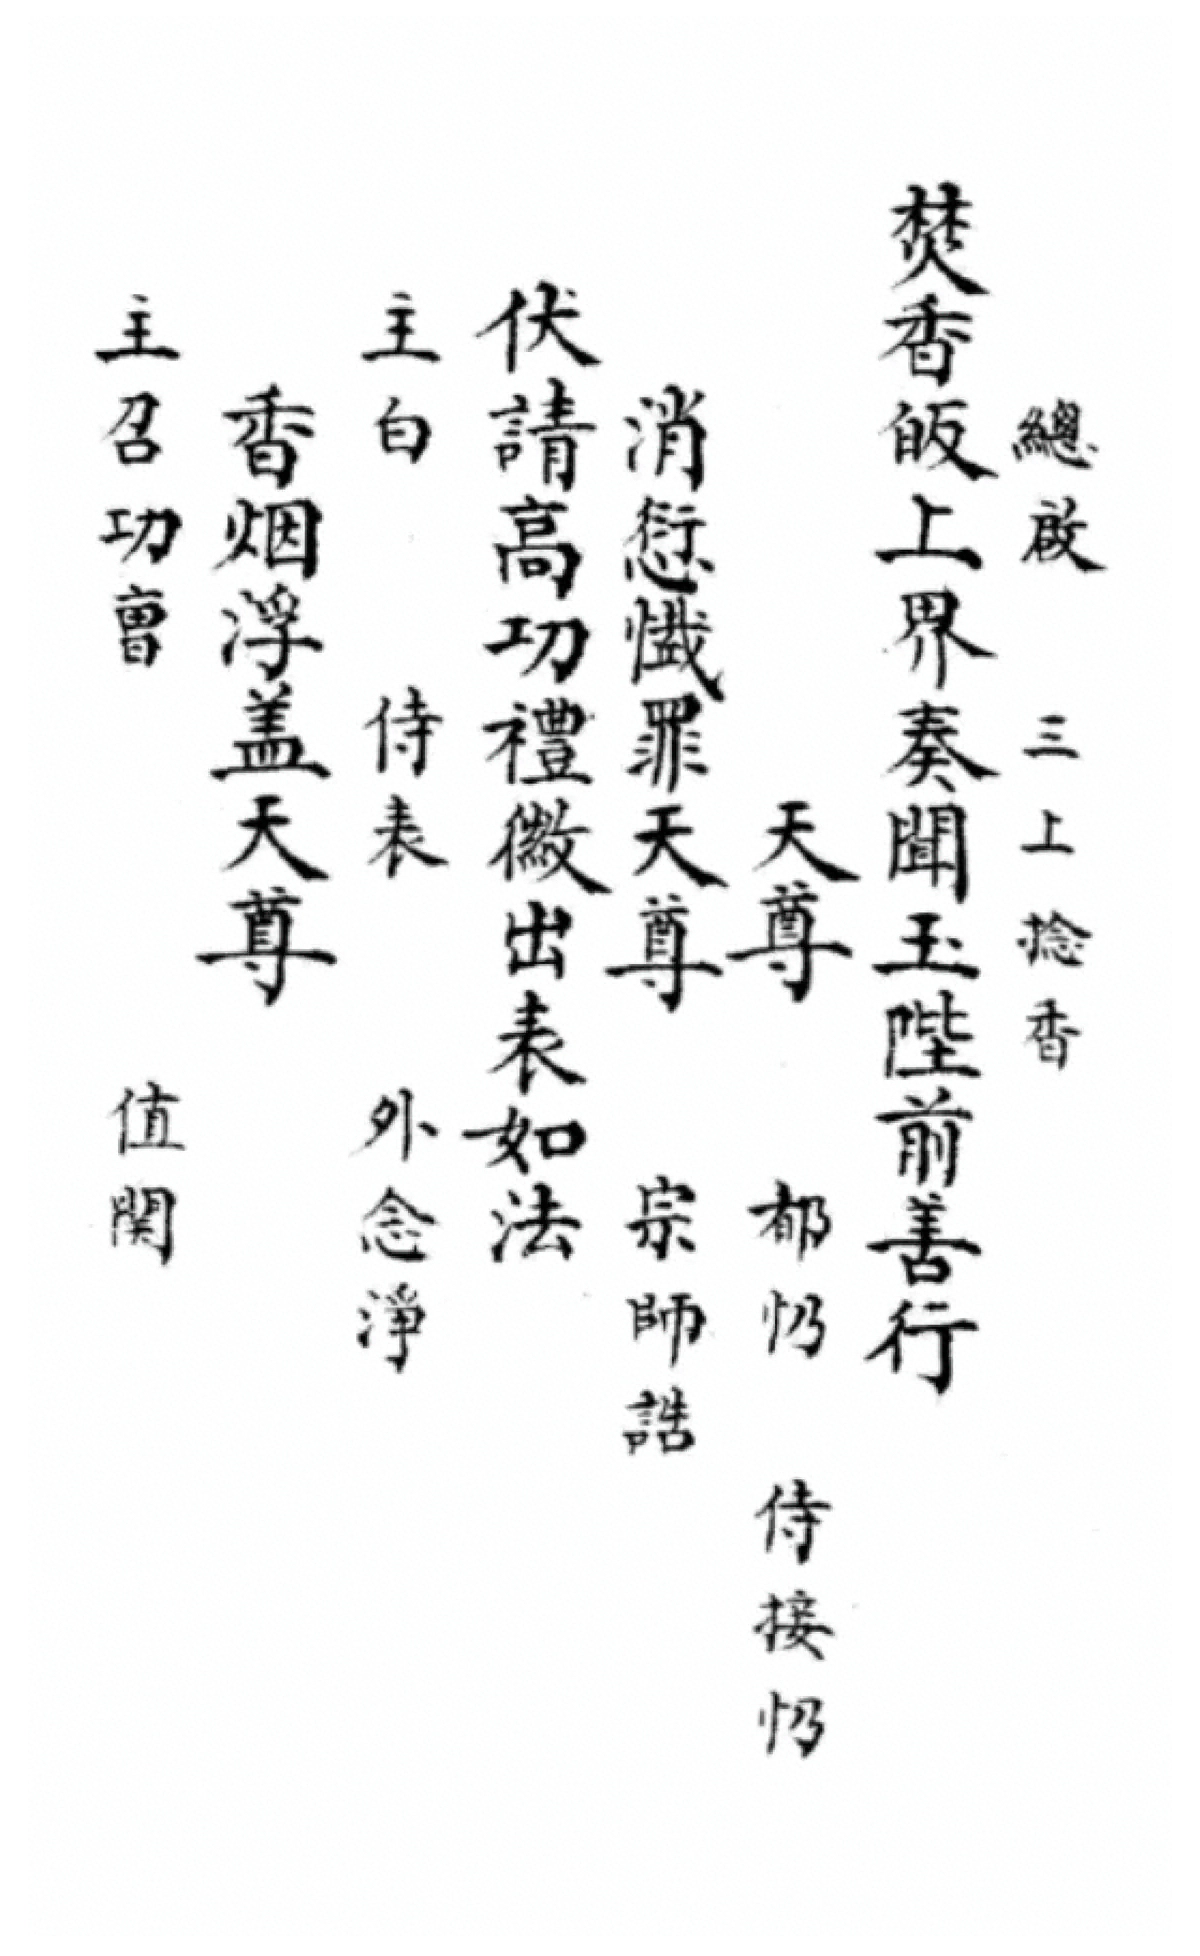 總啟 三上捻香
焚香皈上界奏聞玉陛前善行
天尊 都忉 侍接忉
消愆懺罪天尊 宗師誥
伏請高功禮微出表如法
主白 侍表 外念淨
香烟浮盖天尊
主召功曺 值関